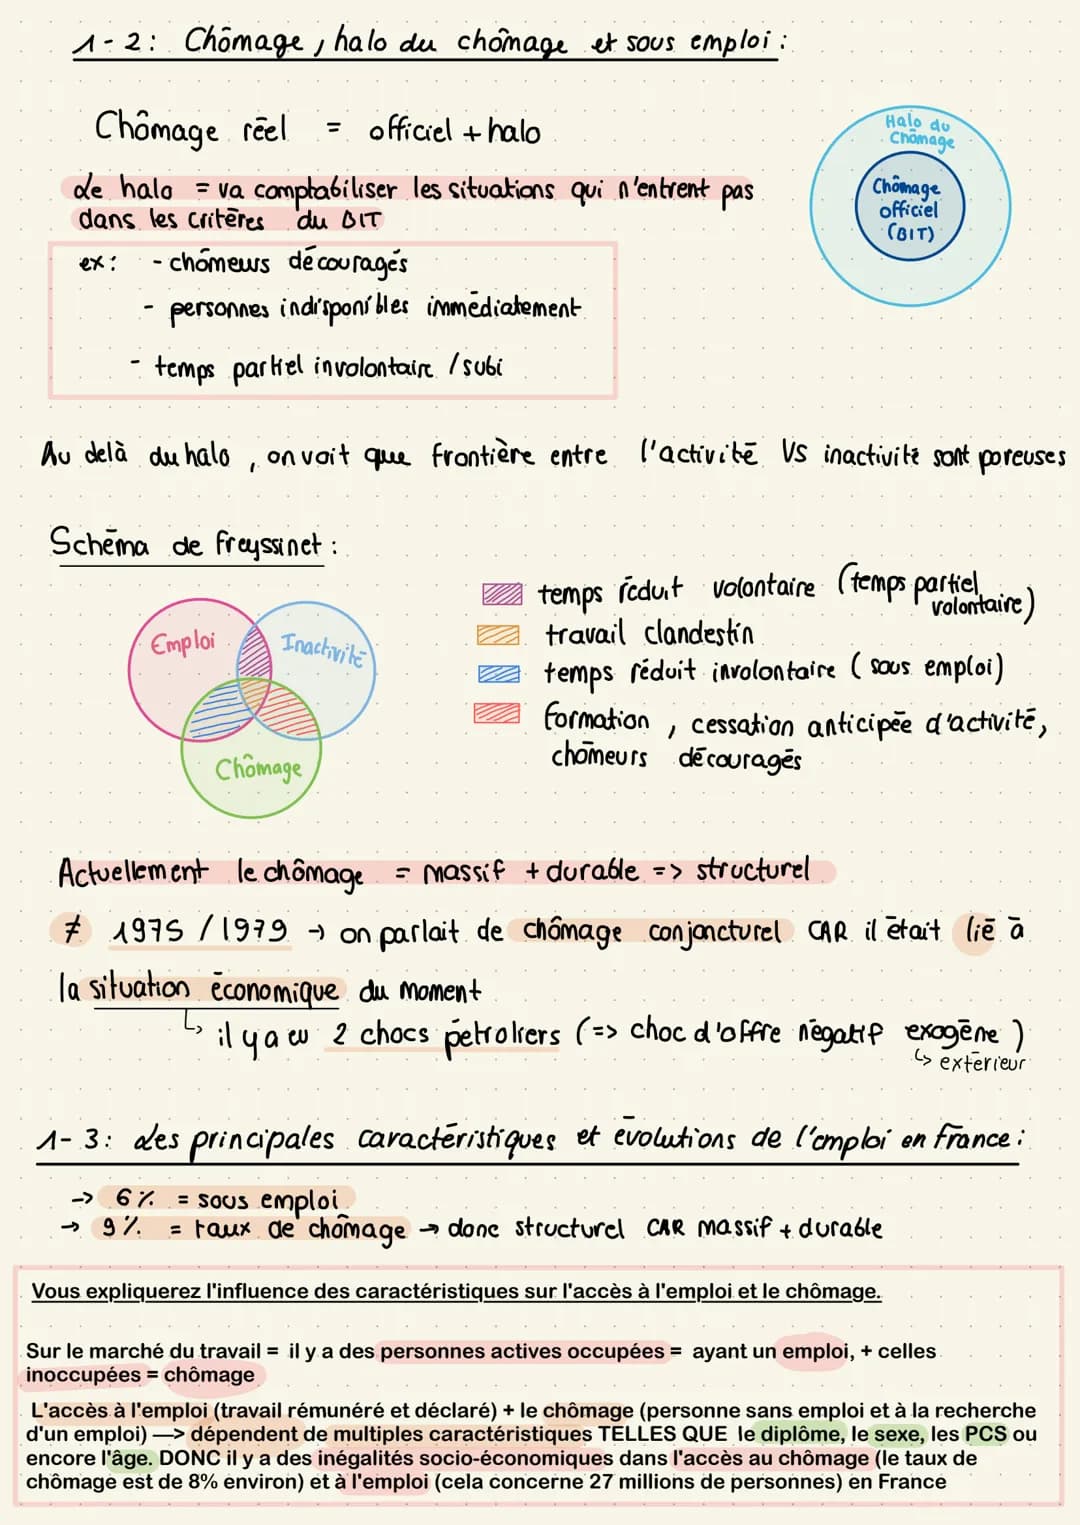 1-2: Chômage, halo du chômage et sous emploi :
Chômage réel = officiel + halo
Halo du
Chômage
Chômage
officiel
(BIT)
Le halo = va comptabiliser les situations qui n'entrent pas
dans les critères du BIT
ex: - chômeurs découragés
- personnes indisponibles immédiatement
- temps partiel involontaire / subi
Au delà du halo, on voit que frontière entre l'activité VS inactivité sont poreuses
Schéma de Freyssinet :
Emploi
Inactivité
Chômage
temps réduit volontaire (temps partiel
volontaire)
travail clandestin
temps réduit involontaire (sous emploi)
formation, cessation anticipée d'activité,
chômeurs découragés
Actuellement le chômage = massif + durable => structurel
≠ 1975 / 1979 → on parlait de chômage conjoncturel CAR il était lié à
la situation économique du moment
↳ il y a eu 2 chocs pétroliers (=> choc d'offre négatif exogène)
↳ extérieur
1-3: Les principales caractéristiques et évolutions de l'emploi en France :
-> 6% = sous emploi
-> 9% = taux de chômage → donc structurel CAR massif + durable
Vous expliquerez l'influence des caractéristiques sur l'accès à l'emploi et le chômage.
Sur le marché du travail = il y a des personnes actives occupées = ayant un emploi, + celles
inoccupées = chômage
L'accès à l'emploi (travail rémunéré et déclaré) + le chômage (personne sans emploi et à la recherche
d'un emploi) —> dépendent de multiples caractéristiques TELLES QUE le diplôme, le sexe, les PCS ou
encore l'âge. DONC il y a des inégalités socio-économiques dans l'accès au chômage (le taux de
chômage est de 8% environ) et à l'emploi (cela concerne 27 millions de personnes) en France